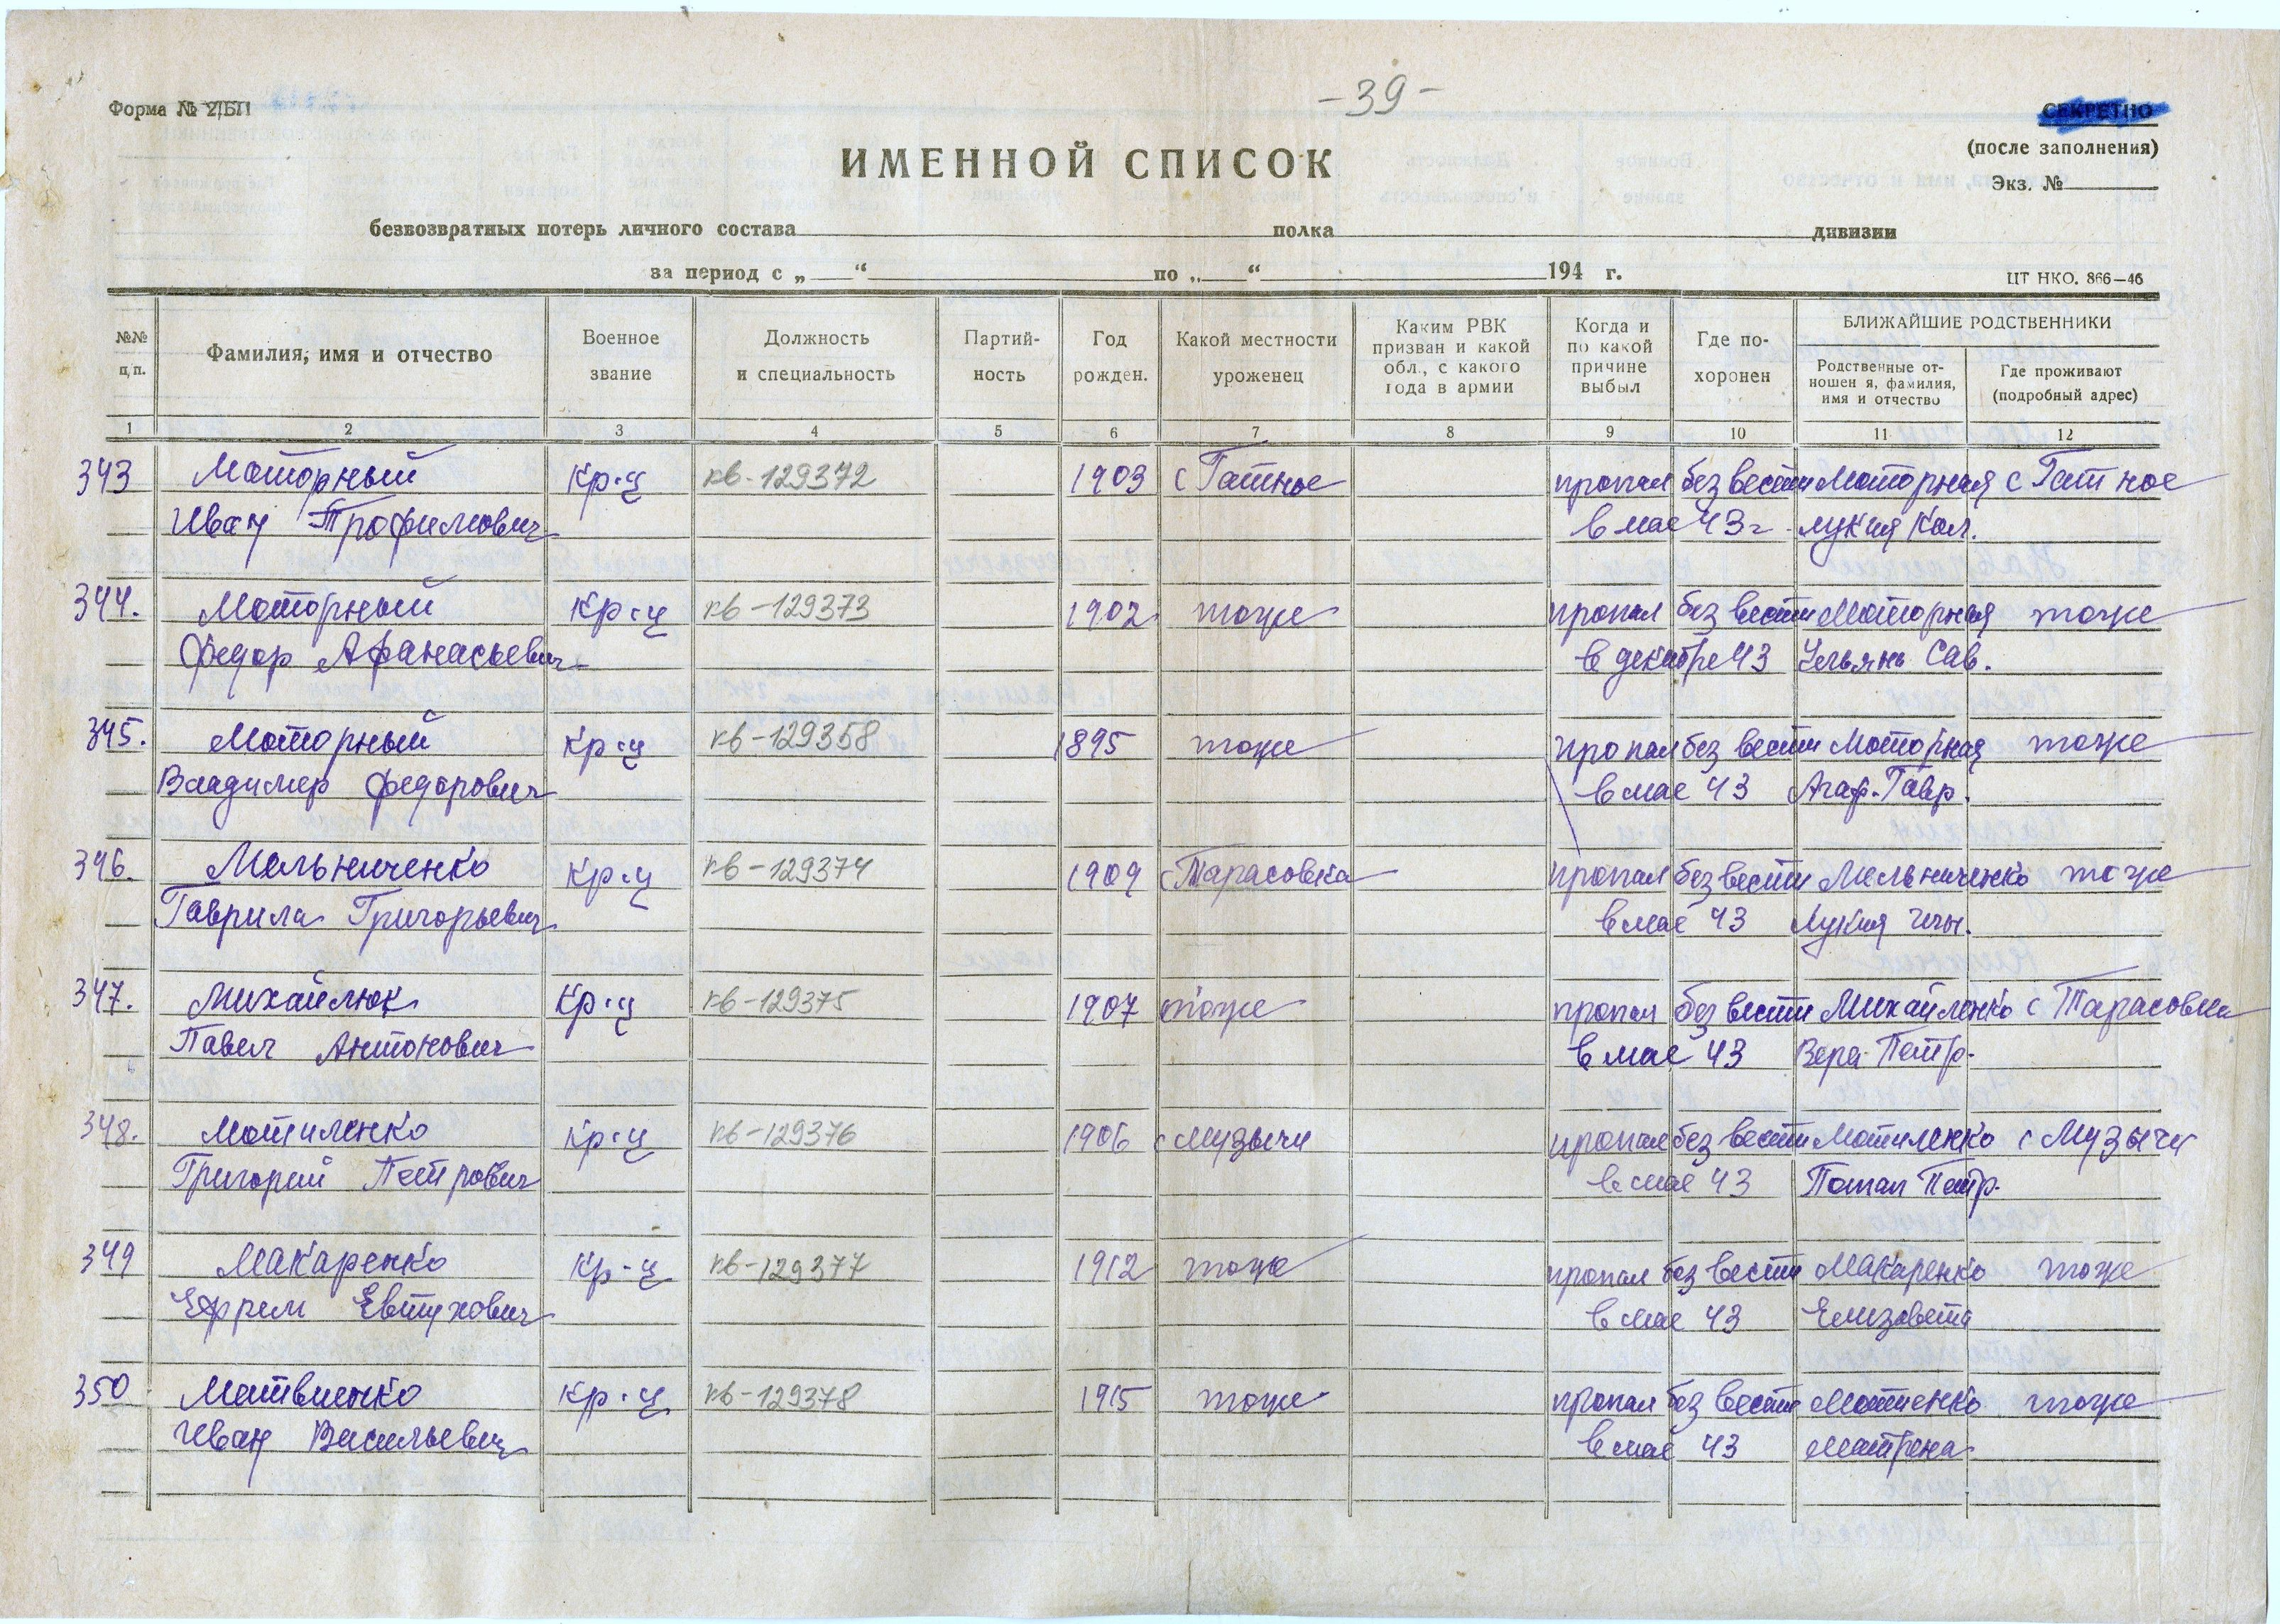 -39-
Форма № 2/БП
СЕКРЕТНО
(после заполнения)
Экз. №
ИМЕННОЙ СПИСОК
безвозвратных потерь личного состава полка дивизии
за период с „ “ по „ “ 194 г.
ЦТ НКО. 866—46
№№ п/п.
Фамилия, имя и отчество
Военное звание
Должность и специальность
Партий-ность
Год рожден.
Какой местности уроженец
Каким РВК призван и какой обл., с какого года в армии
Когда и по какой причине выбыл
Где по-хоронен
БЛИЖАЙШИЕ РОДСТВЕННИКИ
Родственные от-ношен я, фамилия, имя и отчество
Где проживают (подробный адрес)
1 2 3 4 5 6 7 8 9 10 11 12
343 Моторный Кр-ц кв-129372 1903 с Гатное пропал без вести Моторная с Гатное
Иван Трофимович в мае 43г. Лукия Кал.
344. Моторный Кр-ц кв-129373 1902 тоже пропал без вести Моторная тоже
Федор Афанасьевич в декабре 43 Ульянь Сав.
345. Моторный Кр-ц кв-129358 1895 тоже пропал без вести Моторная тоже
Владимер Федорович в мае 43 Агаф. Гавр.
346. Мельниченко Кр-ц кв-129374 1909 с Тарасовка пропал без вести Мельниченко тоже
Гаврила Григорьевич в мае 43 Лукия
347. Михайлюк Кр-ц кв-129375 1907 тоже пропал без вести Михайленко с Тарасовка
Павел Антонович в мае 43 Вера Петр.
348. Мотиленко Кр-ц кв-129376 1906 с Музычи пропал без вести Мотиленко с Музычи
Григорий Петрович в мае 43 Петр.
349 Макаренко Кр-ц кв-129377 1912 тоже пропал без вести Макаренко тоже
Ефрем Евтухович в мае 43 Елизавета
350 Матвиенко Кр-ц кв-129378 1915 тоже пропал без вести тоже
Иван Васильевич в мае 43 Матрена